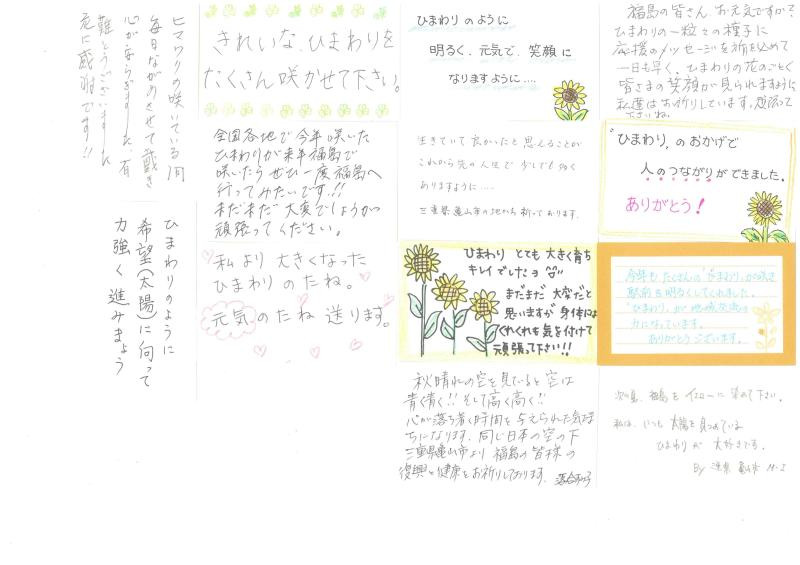 福島の皆さん、お元気ですか?
ひまわりの一粒々の種子に
応援のメッセージを祈を込めて
一日も早く、ひまわりの花のごとく
皆さまの笑顔が見られますように
私達はお祈りしています。頑張って
下さいね。
"ひまわり"のおかげで
人のつながりができました。
ありがとう!
今年もたくさんの"ひまわり"が咲き
駅前を明るくしてくれました。
"ひまわり"が地域交流の
力になっています。
ありがとうございます。
次の夏、福島をイエローに染めて下さい。
私は、いつも太陽を見つめている
ひまわりが 大好きです。
By 亀山
ひまわりのように
明るく、元気で、笑顔に
なりますように‥‥
生きていて良かったと思えることが
これから先の人生で少しでも多く
ありますように‥‥
三重県亀山市の地から祈っております。
ひまわり とても大きく育ち
キレイでしたョ
まだまだ 大変だと
思いますが 身体には
くれぐれも気を付けて
頑張って下さい!!
秋晴れの空を見ていると空は
青く青く!!そして高く高く!!
心が落ち着く時間を与えられた気持
ちになります。同じ日本の空の下
三重県亀山市より 福島の皆様の
復興と健康をお祈りしております。
きれいな、ひまわりを
たくさん咲かせて下さい。
全国各地で今年咲いた
ひまわりが来年福島で
咲いたらぜひ一度福島へ
行ってみたいです!!
まだまだ大変でしょうが
頑張ってください。
私より大きくなった
ひまわりのたね。
元気のたね 送ります。
ヒマワリの咲いている間
毎日ながめさせて戴き
心がやすらぎました、有
難とうございました
花に感謝です!!
ひまわりのように
希望(太陽)に向って
力強く進みましょう